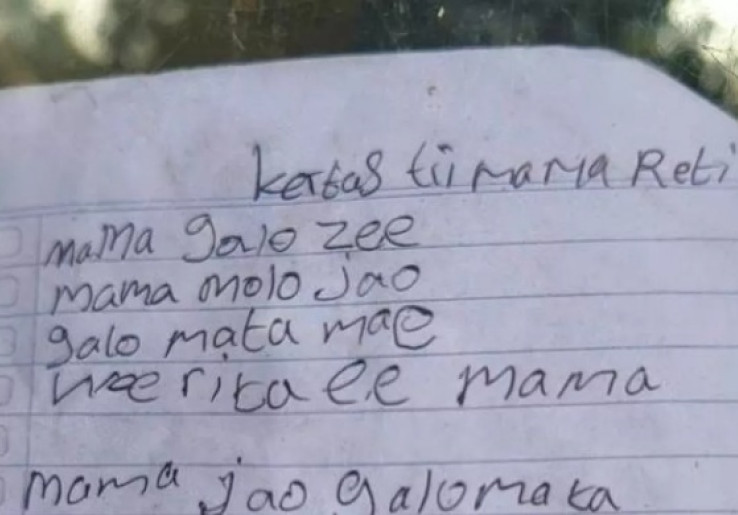 kertas tii mama Reti
mama galo zee
mama molo Jao
galo mata mae
wee rita ee mama
mama jao galo mata